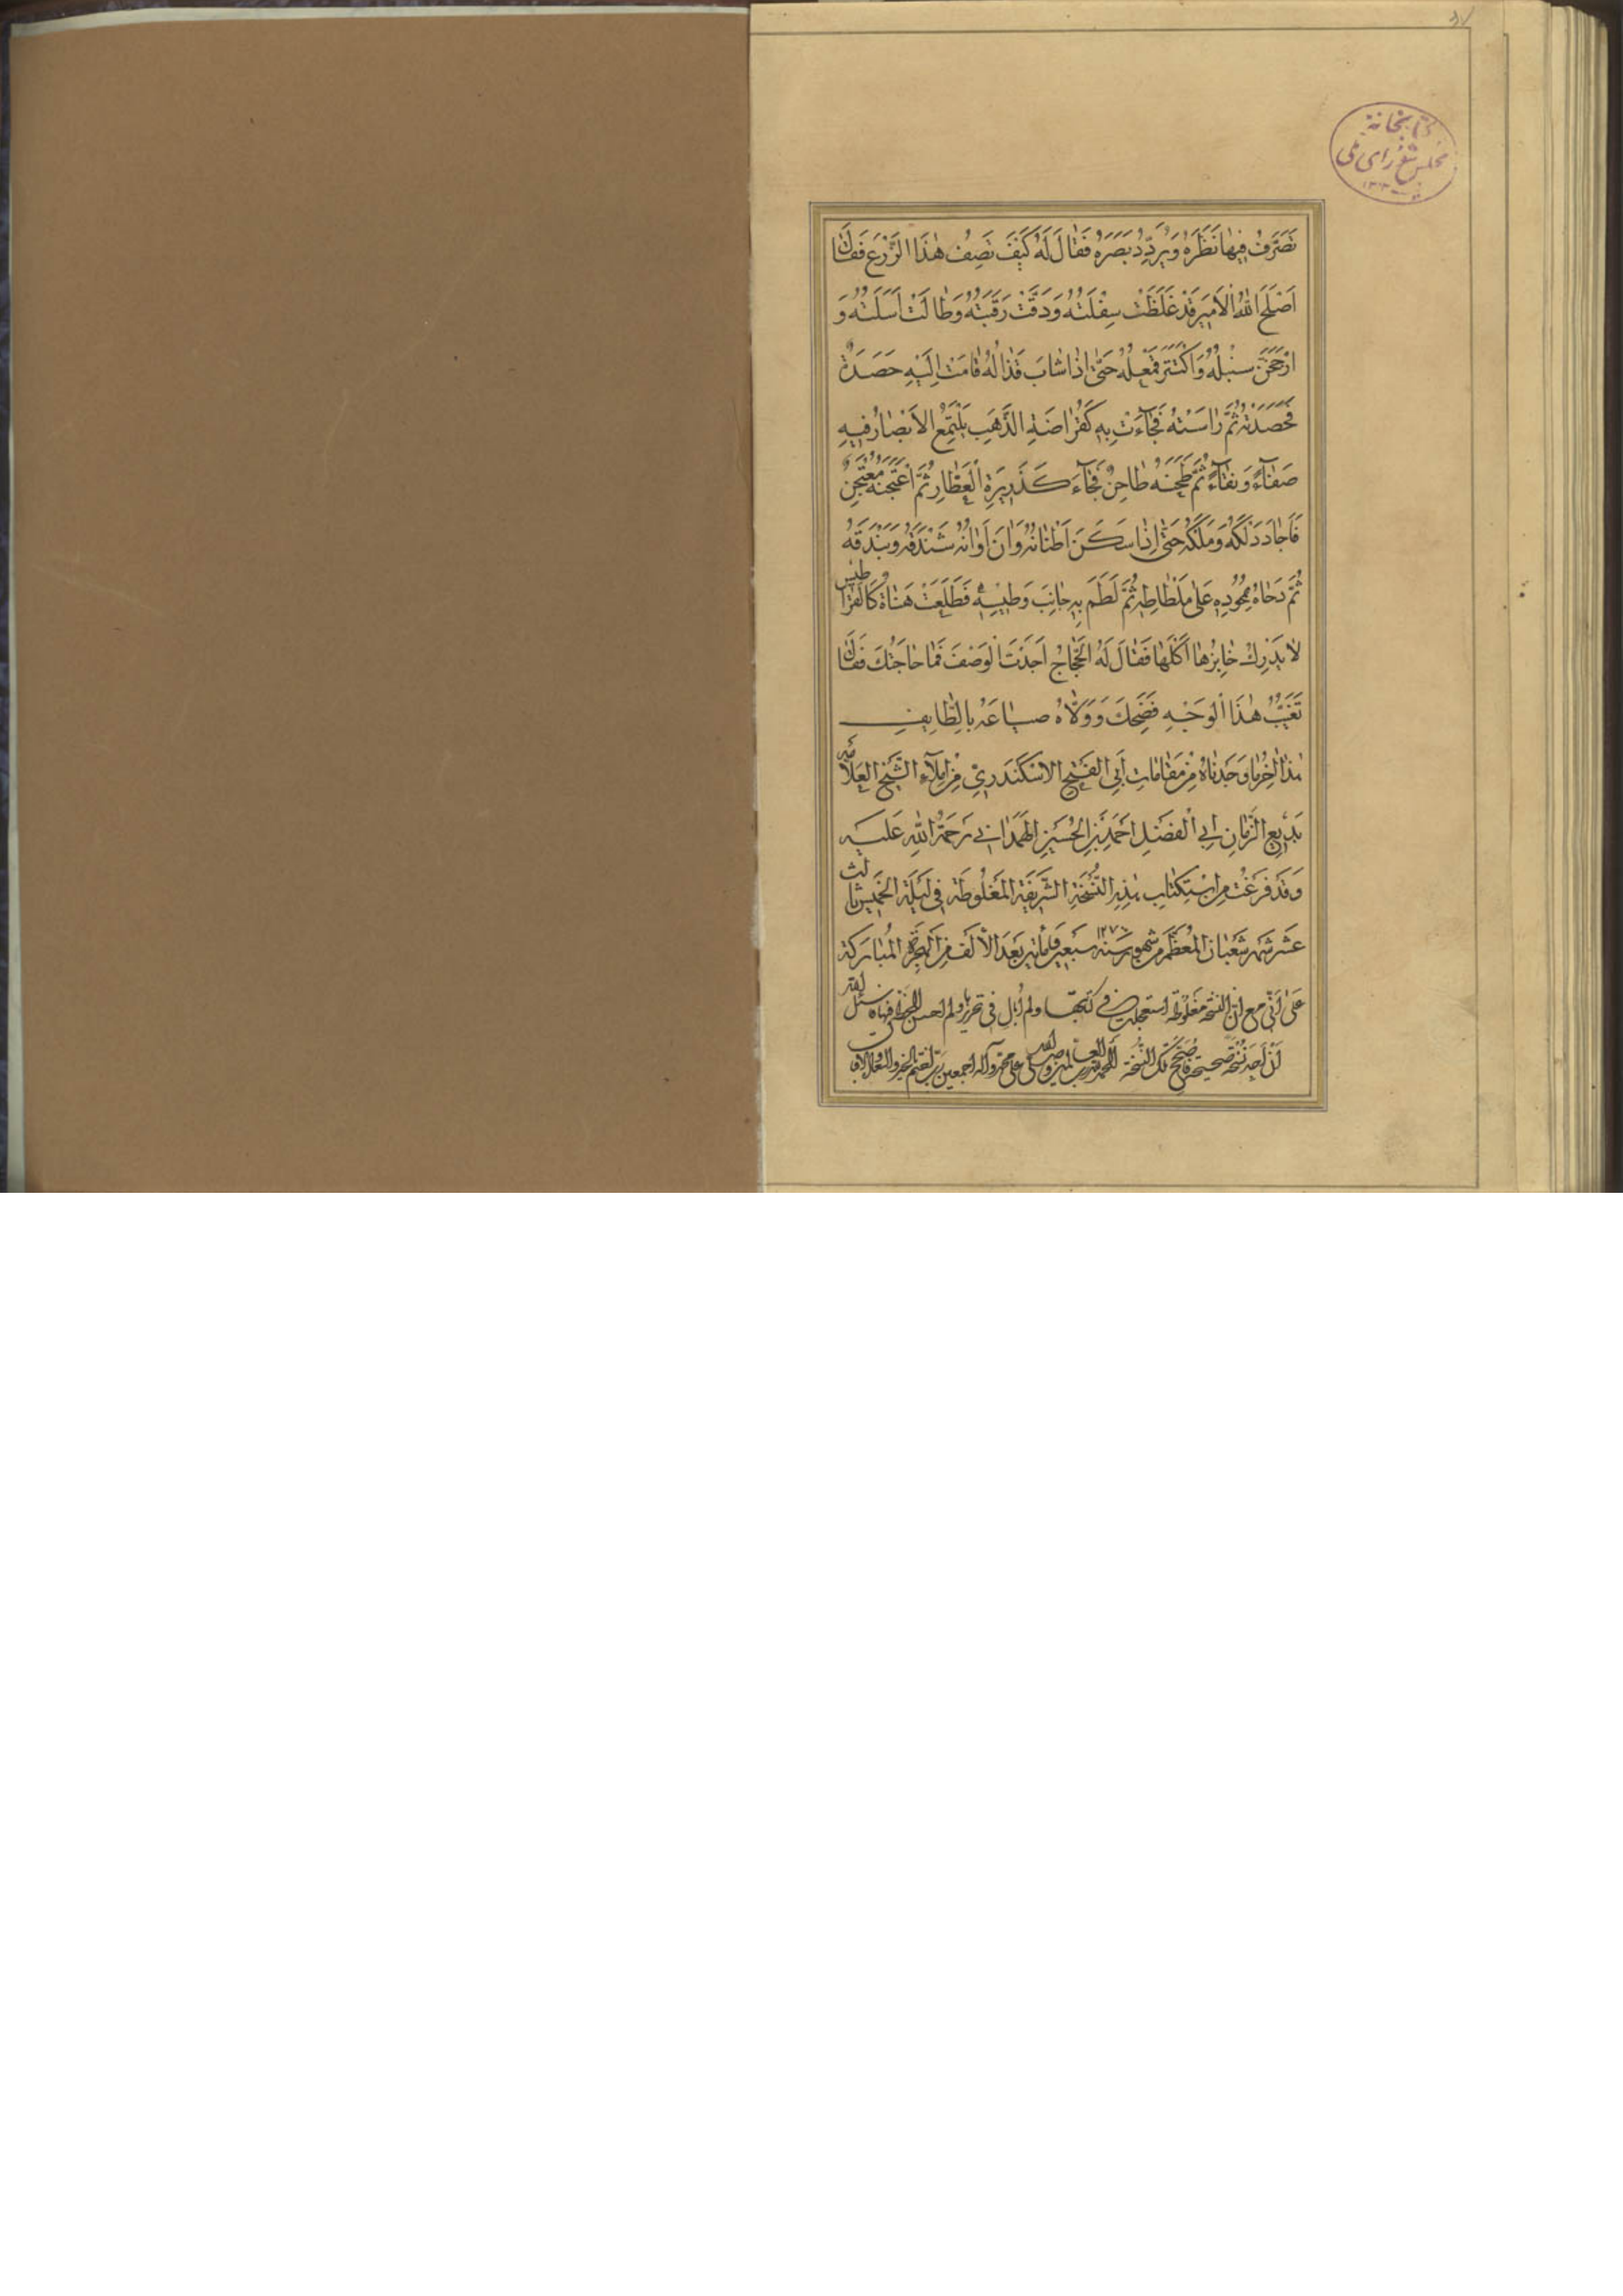 كتابخانه
مجلس شورای ملی
تَصَرَّفَ فِيهَا نَظَرُهُ وَيُرَدِّدُ بَصَرَهُ فَقَالَ لَهُ كَيْفَ تَصِفُ هٰذَا الزَّرْعَ فَقَالَ
اَصْلَحَ اللهُ الْاَمِيرَ قَدْ غَلَظَتْ سِفْلَتُهُ وَدَقَّتْ رَقَبَتُهُ وَطَالَتْ اَسَلَتُهُ وَ
ارْجَحَنَّ سُنْبُلُهُ وَاكْتَنَزَ حَتّٰى اِذَا شَابَ قَذَالُهُ قَامَتْ اِلَيْهِ حَصَدَةٌ
فَحَصَدَتْهُ ثُمَّ رَاسَتْهُ فَجَاءَتْ بِهِ كَقُرَاضَةِ الذَّهَبِ يَلْتَمِعُ الْاَبْصَارُ فِيهِ
صَفَاءً وَنَقَاءً ثُمَّ طَحَنَهُ طَاحِنٌ فَجَاءَ كَذَرِيرَةِ الْعَطَّارِ ثُمَّ اعْتَجَنَهُ مُعْتَجِنٌ
فَاَجَادَ دَلْكَهُ وَمَلْكَهُ حَتّٰى اِذَا سَكَنَ وَاٰنَ اَوَانُهُ شَنْدَقَهُ وَبَنْدَقَهُ
ثُمَّ دَحَاهُ عَلٰى مَلْطَاطِهِ ثُمَّ لَطَمَ بِهِ جَانِبَ وَطِيسِهِ فَطَلَعَتْ هَنَاةٌ كَالْقَرَاطِيسِ
لَا يَدْرِكُ خَابِزُهَا اَكْلَهَا فَقَالَ لَهُ الْحَجَّاجُ اَجَدْتَ الْوَصْفَ فَمَا حَاجَتُكَ فَقَالَ
تَغَيُّبُ هٰذَا الْوَجْهِ فَضَحِكَ وَوَلَّاهُ بِالطَّايِفِ
هٰذَا اٰخِرُ مَا وَجَدْنَاهُ مِنْ مَقَامَاتِ اَبِي الْفَتْحِ الْاِسْكَنْدَرِيِّ مِنْ اِمْلَآءِ الشَّيْخِ الْعَلَّامَةِ
بَدِيعِ الزَّمَانِ اَبِي الْفَضْلِ اَحْمَدَ بْنِ الْحُسَيْنِ الْهَمَدَانِيِّ رَحْمَةُ اللهِ عَلَيْهِ
وَقَدْ فَرَغْتُ مِنِ اسْتِكْتَابِ هٰذِهِ النُّسْخَةِ الشَّرِيفَةِ الْمَغْلُوطَةِ فِي لَيْلَةِ الْخَمِيسِ ثَالِثَ
عَشَرَ شَهْرِ شَعْبَانَ الْمُعَظَّمِ مِنْ شُهُورِ سَنَةِ ١٢٧٠ سَبْعِينَ وَمِأَتَيْنِ بَعْدَ الْاَلْفِ مِنَ الْهِجْرَةِ الْمُبَارَكَةِ
عَلٰى اَنِّي مَعَ اَنَّ النُّسْخَةَ مَغْلُوطَة استعجلت فى كتبها ولم اُبال فى تحريرها ولم احسن الخط
اَنْ اَجِدَ نُسْخَة صحيحة تلك النسخة الحمد لله رب العالمين وصلى الله على محمد وآله اجمعين